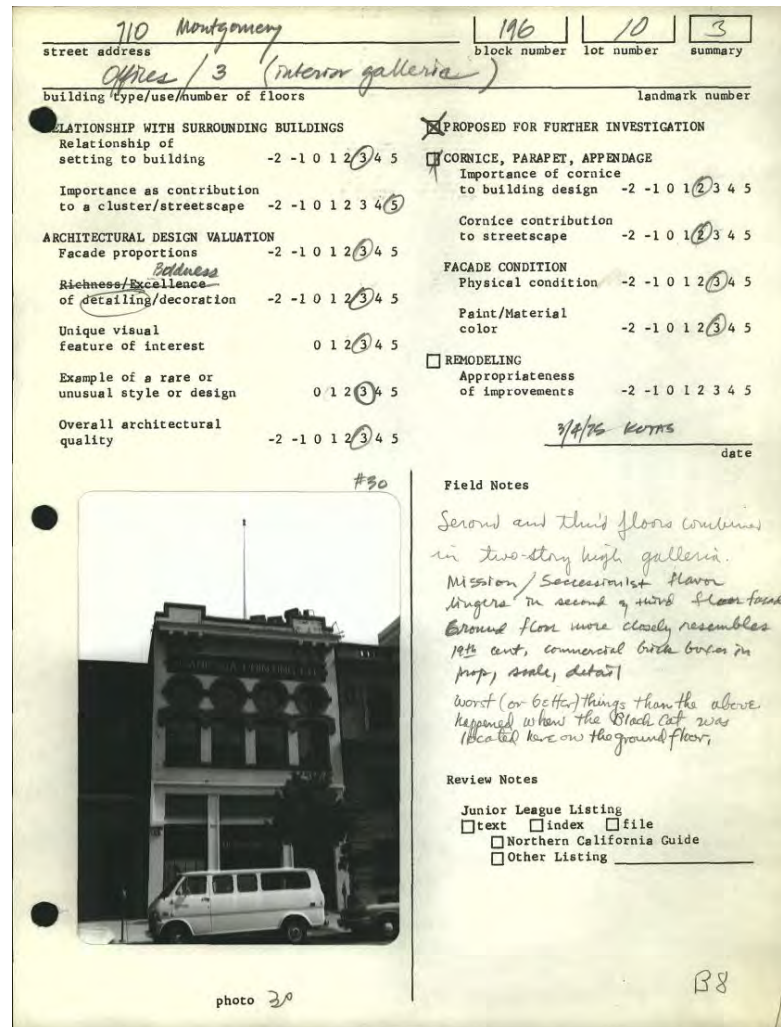 710 Montgomery
196
10
3
street address
block number
lot number
summary
Offices / 3 (interior galleria)
building type/use/number of floors
landmark number
ELATIONSHIP WITH SURROUNDING BUILDINGS
Relationship of
setting to building -2 -1 0 1 2 3 4 5
Importance as contribution
to a cluster/streetscape -2 -1 0 1 2 3 4 5
ARCHITECTURAL DESIGN VALUATION
Facade proportions -2 -1 0 1 2 3 4 5
Boldness
Richness/Excellence
of detailing/decoration -2 -1 0 1 2 3 4 5
Unique visual
feature of interest 0 1 2 3 4 5
Example of a rare or
unusual style or design 0 1 2 3 4 5
Overall architectural
quality -2 -1 0 1 2 3 4 5
PROPOSED FOR FURTHER INVESTIGATION
CORNICE, PARAPET, APPENDAGE
Importance of cornice
to building design -2 -1 0 1 2 3 4 5
Cornice contribution
to streetscape -2 -1 0 1 2 3 4 5
FACADE CONDITION
Physical condition -2 -1 0 1 2 3 4 5
Paint/Material
color -2 -1 0 1 2 3 4 5
REMODELING
Appropriateness
of improvements -2 -1 0 1 2 3 4 5
3/4/75
date
#30
photo 30
Field Notes
Second and third floors combined
in two-story high galleria.
Mission/Seccessionist flavor
lingers in second & third floor facad
Ground floor more closely resembles
19th cent, commercial brick boxes in
prop, scale, detail
Worst (or better) things than the above
happened when the Black Cat was
located here on the ground floor,
Review Notes
Junior League Listing
text index file
Northern California Guide
Other Listing
B8